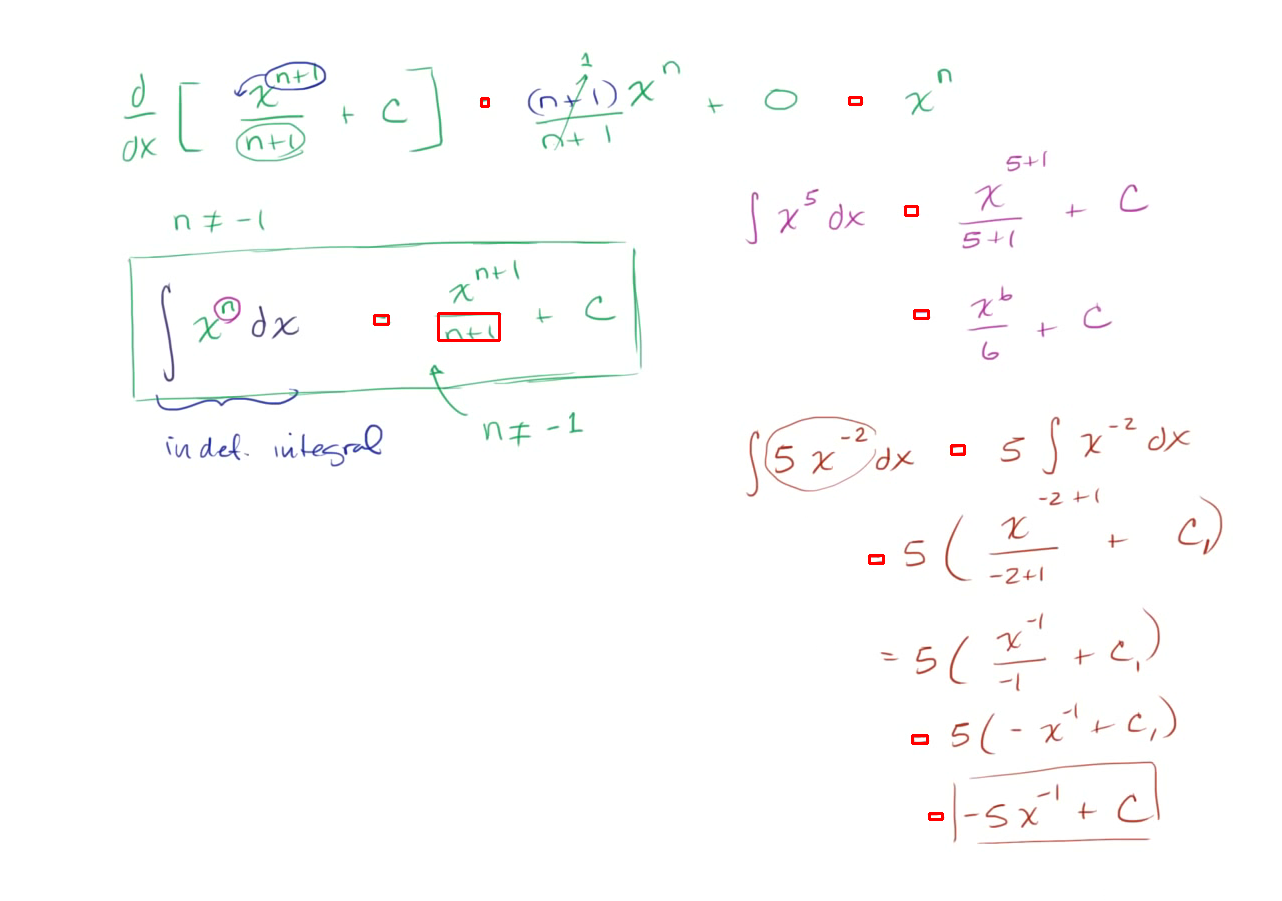 d/dx [ x^(n+1)/(n+1) + C ] = (n+1)/(n+1) x^n + 0 = x^n
1
n ≠ -1
∫ x^n dx = x^(n+1)/(n+1) + C
n ≠ -1
indef. integral
∫ x^5 dx = x^(5+1)/(5+1) + C
= x^6/6 + C
∫ 5 x^-2 dx = 5 ∫ x^-2 dx
= 5 ( x^(-2+1)/(-2+1) + C₁)
= 5 ( x^-1/-1 + C₁)
= 5 ( - x^-1 + C₁)
= -5x^-1 + C